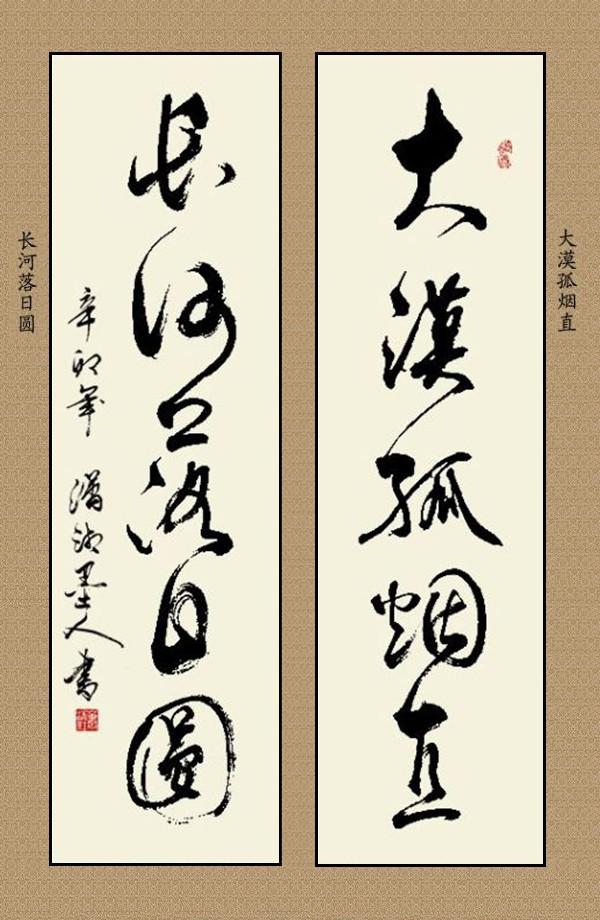 大漠孤烟直
大漠孤烟直
长河落日圆
辛卯年 潇湘墨人书
长河落日圆